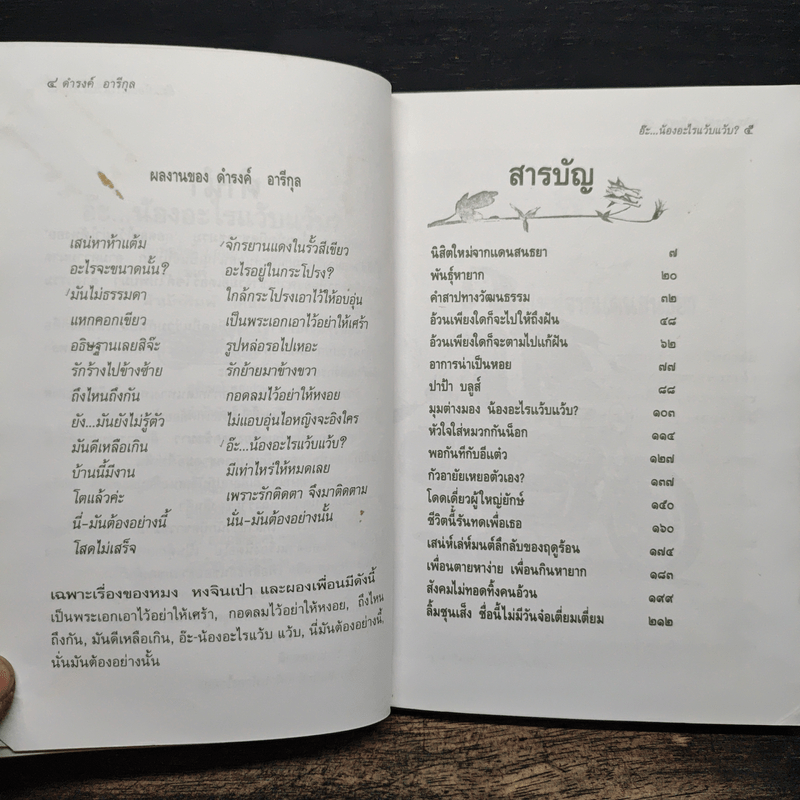 ๔ ดำรงค์ อารีกุล
ผลงานของ ดำรงค์ อารีกุล
เสน่หาห้าแต้ม
จักรยานแดงในรั้วสีเขียว
อะไรจะขนาดนั้น?
อะไรอยู่ในกระโปรง?
มันไม่ธรรมดา
ใกล้กระโปรงเอาไว้ให้อบอุ่น
แหกคอกเขียว
เป็นพระเอกเอาไว้อย่าให้เศร้า
อธิษฐานเลยสิจ๊ะ
รูปหล่อรอไปเหอะ
รักร้างไปข้างซ้าย
รักย้ายมาข้างขวา
ถึงไหนถึงกัน
กอดลมไว้อย่าให้หงอย
ยัง...มันยังไม่รู้ตัว
ไม่แอบอุ่นไอหญิงจะอิงใคร
มันดีเหลือเกิน
อ๊ะ...น้องอะไรแว้บแว้บ?
บ้านนี้มีงาน
มีเท่าไหร่ให้หมดเลย
โตแล้วค่ะ
เพราะรักติดตา จึงมาติดตาม
นี่-มันต้องอย่างนี้
นั่น-มันต้องอย่างนั้น
โสดไม่เสร็จ
เฉพาะเรื่องของหมง หงจินเป่า และผองเพื่อนมีดังนี้
เป็นพระเอกเอาไว้อย่าให้เศร้า, กอดลมไว้อย่าให้หงอย, ถึงไหน
ถึงกัน, มันดีเหลือเกิน, อ๊ะ-น้องอะไรแว้บ แว้บ, นี่มันต้องอย่างนี้,
นั่นมันต้องอย่างนั้น
อ๊ะ...น้องอะไรแว้บแว้บ? ๕
สารบัญ
นิสิตใหม่จากแดนสนธยา ๗
พันธุ์หายาก ๒๐
คำสาปทางวัฒนธรรม ๓๒
อ้วนเพียงใดก็จะไปให้ถึงฝัน ๔๘
อ้วนเพียงใดก็จะตามไปแก้ฝัน ๖๒
อาการน่าเป็นหอย ๗๗
ปาป้า บลูส์ ๘๘
มุมต่างมอง น้องอะไรแว้บแว้บ? ๑๐๓
หัวใจใส่หมวกกันน็อก ๑๑๔
พอกันทีกับอีแต๋ว ๑๒๗
กัวอายัยเหยอตัวเอง? ๑๓๗
โดดเดี่ยวผู้ใหญ่ยักษ์ ๑๕๐
ชีวิตนี้รันทดเพื่อเธอ ๑๖๐
เสน่ห์เล่ห์มนต์ลึกลับของฤดูร้อน ๑๗๔
เพื่อนตายหาง่าย เพื่อนกินหายาก ๑๘๓
สังคมไม่ทอดทิ้งคนอ้วน ๑๙๙
ลิ้มชุนเส็ง ชื่อนี้ไม่มีวันจ๋อเตี่ยมเตี่ยม ๒๑๒